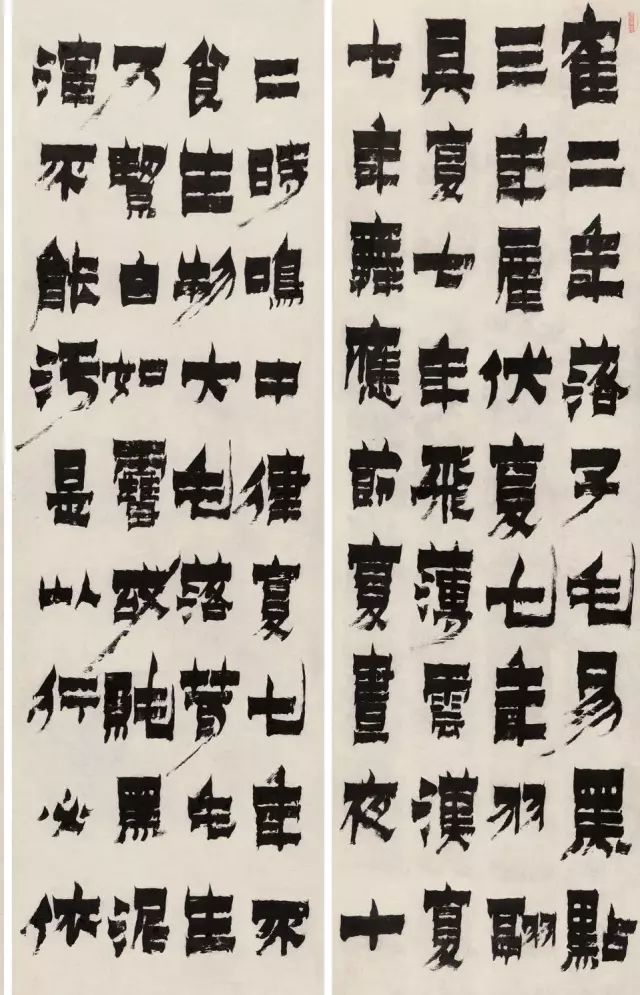 隺二年落子毛易黑點
三年伏夏七年羽翮
具夏七年飛薄雲漢夏
七年舞應節夏晝夜十
二時鳴中律夏七年不
食生物大毛落茸毛生
乃白如故黑泥
渾不能污是以行必依